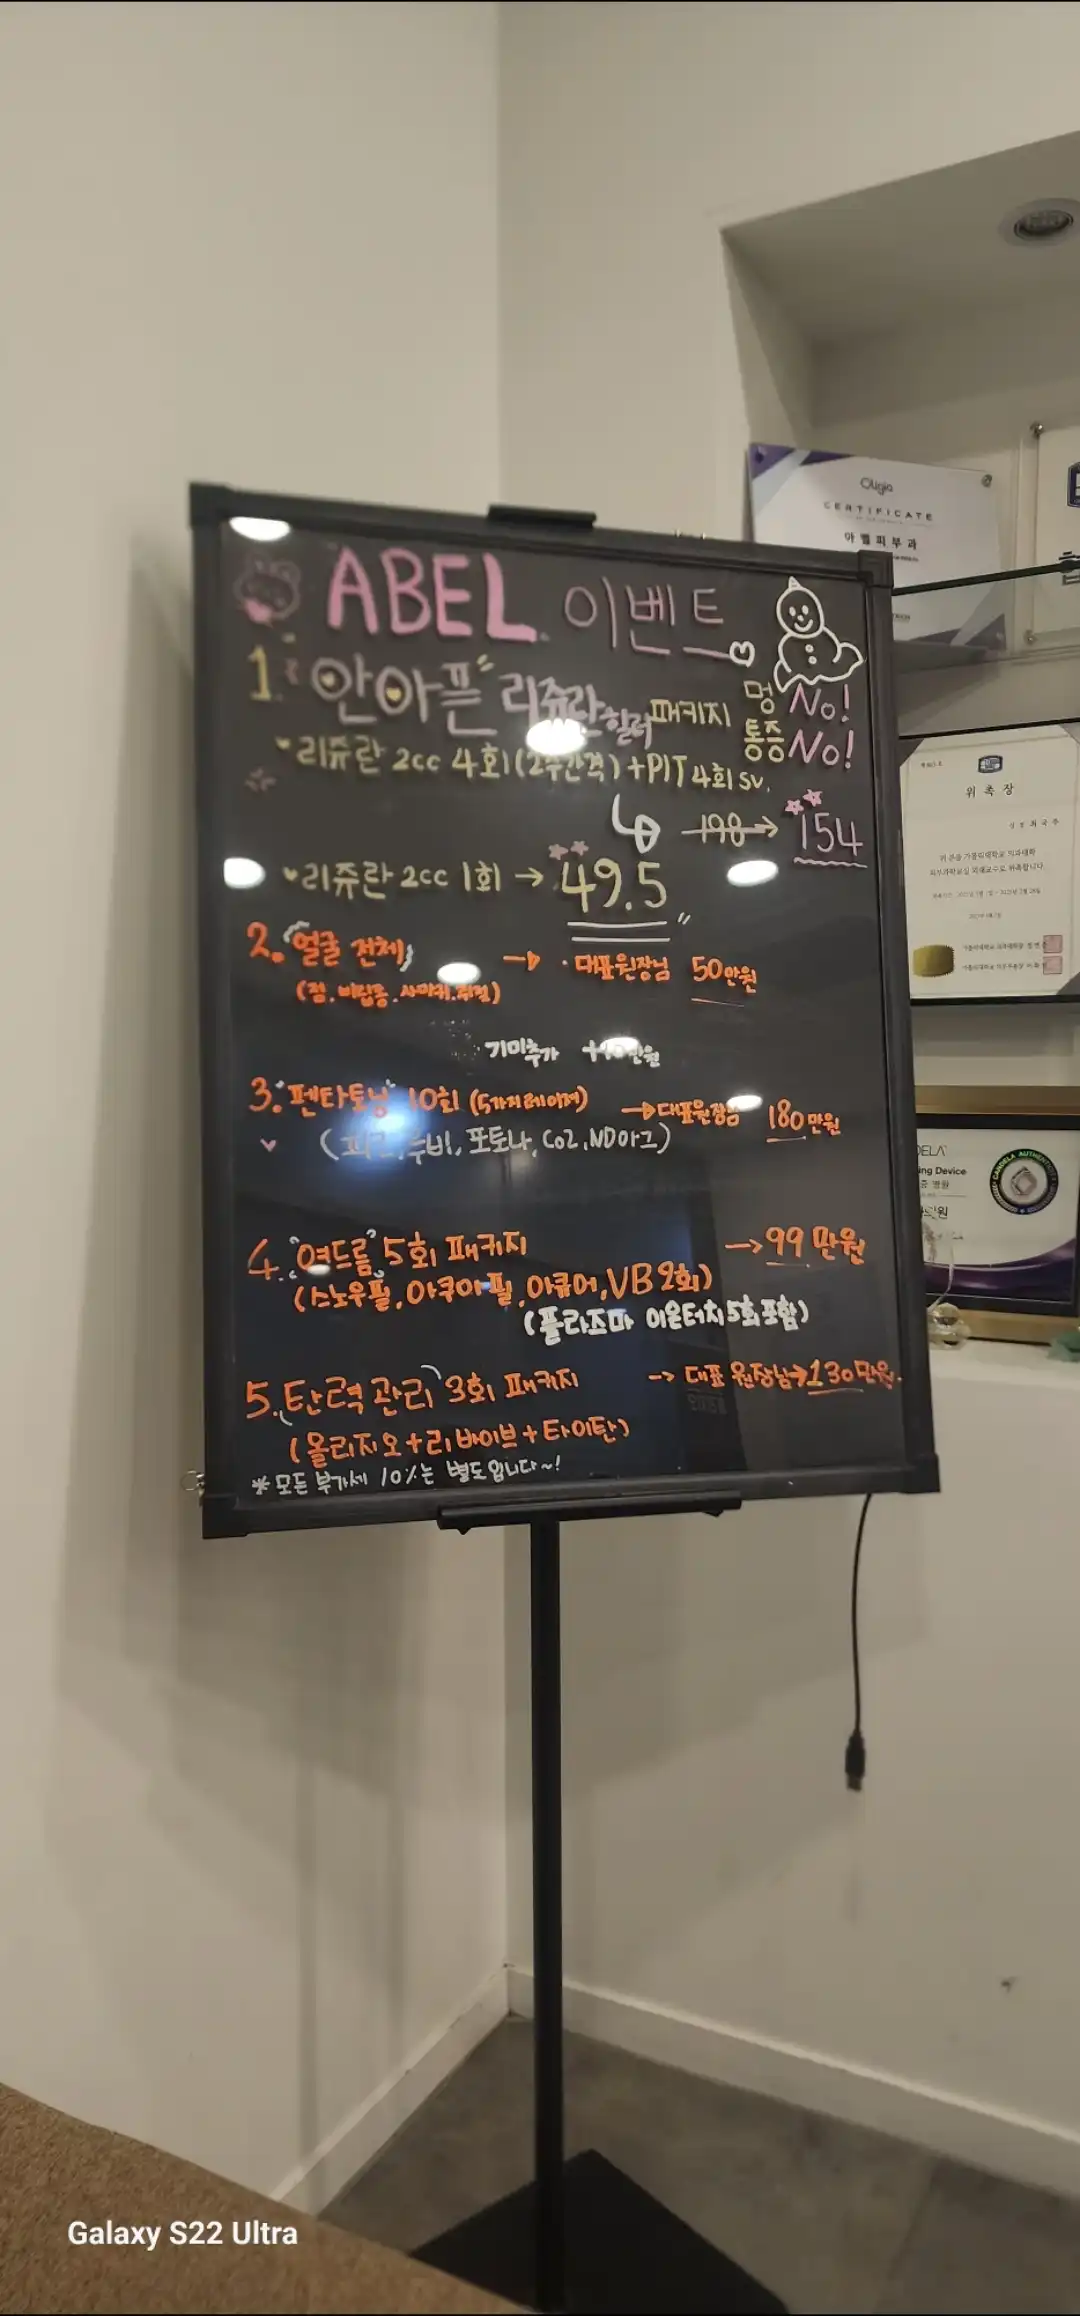 ABEL 이벤트
1. "안아픈" 리쥬란힐러 패키지 멍 No!
통증 No!
리쥬란 2cc 4회(2주간격)+PIT 4회 sv.
198 → 154
리쥬란 2cc 1회 → 49.5
2. "얼굴 전체" → 대표원장님 50만원
(점, 비립종, 사마귀,
기미추가
3. "펜타토닝" 10회 (5가지레이저) → 대표원장님 180만원
루비, 포토나, Co2, ND야그)
4. "여드름" 5회 패키지 → 99만원
(스노우필, 아쿠아필, 아큐어, VB 2회)
(플라즈마 이온터치 5회 포함)
5. "탄력 관리" 3회 패키지 → 대표원장님 → 130만원
(올리지오+리바이브+타이탄)
* 모든 부가세 10%는 별도입니다~!
Oligio
CERTIFICATE
아벨피부과
위촉장
ing Device
Galaxy S22 Ultra